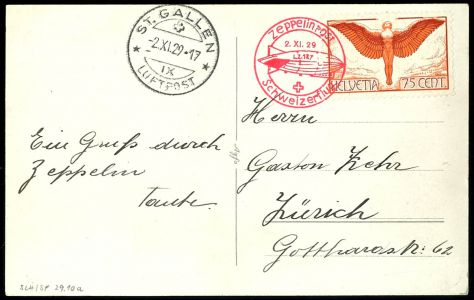 ST. GALLEN
-2.XI.29-17
IX
LUFTPOST
Zeppelinpost
2. XI. 29
L.Z. 127
Schweizerflug
HELVETIA 75 CENT.
Ein Gruß durch
Zeppelin
Taube.
Herrn
Gaston Kehr
Zürich
Gottharastr: 62
SCH/SP 29.10a